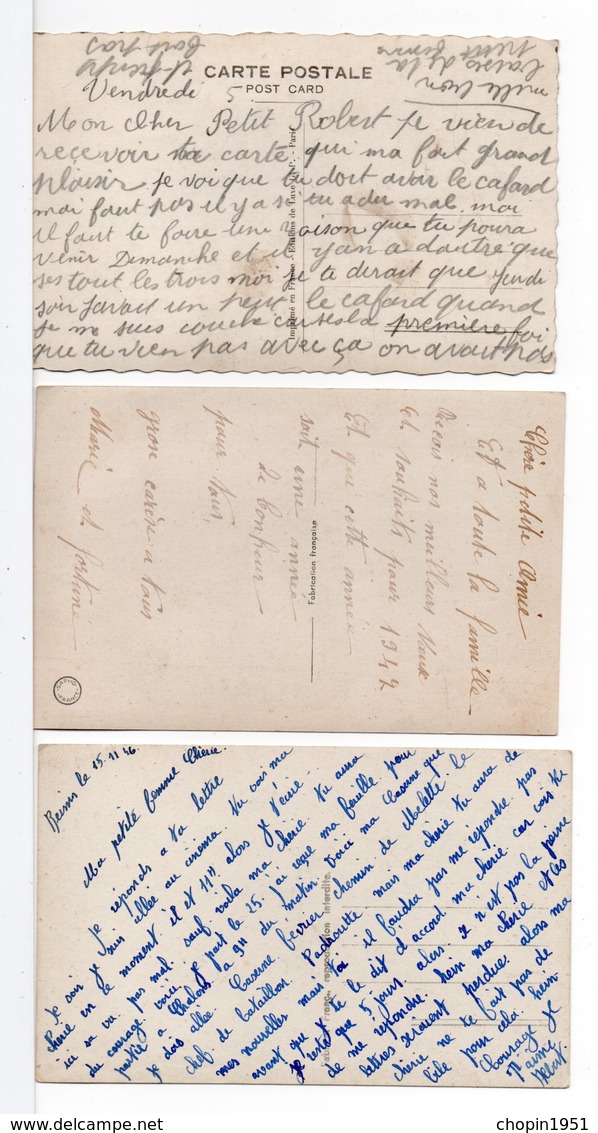 mille bon
baiser de la
petite femme
CARTE POSTALE
POST CARD
Vendredi 5
Mon Cher Petit Robert je vien de
reçevoir ta carte qui ma fait grand
plaisir je voi que tu doit avoir le cafard
moi faut pas il y a si tu a du mal moi
il faut te faire une raison que tu poura
venir Dimanche et il yan a dautre que
ses tout les trois moi je te dirait que jeudi
soir javait un peut le cafard quand
je me suis couche car sesla première foi
que tu vien pas avec ça on avait pas
Imprimé en France - Editions de Luxe - Paris
Chère petite Amie
Et a toute la famille
Recois nos meilleurs Vœux
Et souhaits pour 1947
Et que cette année
soit une année
de bonheur
pour tous,
grose carèse a tous
Marie et fortuné
Fabrication française
SAPHO
FRANCE
Reims le 15.11.46
Ma petite femme Chérie.
Je réponds a ta lettre
Je voi je suis allée au cinéma tu vois ma
chérie en ce moment il et 11H alors je t'écrie.
ici sa va pas mal sauf voila ma chérie tu aura
du courage voici je part le 25 j'ai reçue ma feuille pour
partir a Chalons a 9H du matin Voici ma Caserne que
je dois allée Caserne février chemin de Melette le
chef de bataillon mais ma chérie tu aura de
mes nouvelles mais toi il faudra pas me répondre pas
avant que je te le dit d'accord ma chérie car vois tu
je restet que 5 jours alors se n'est pas la peine
de me répondre hein ma chérie et les
lettres seraient perdue alors ma
chérie ne te fait pas de
bile pour cela hein
Courage Je
T'aime
interdite
chopin1951